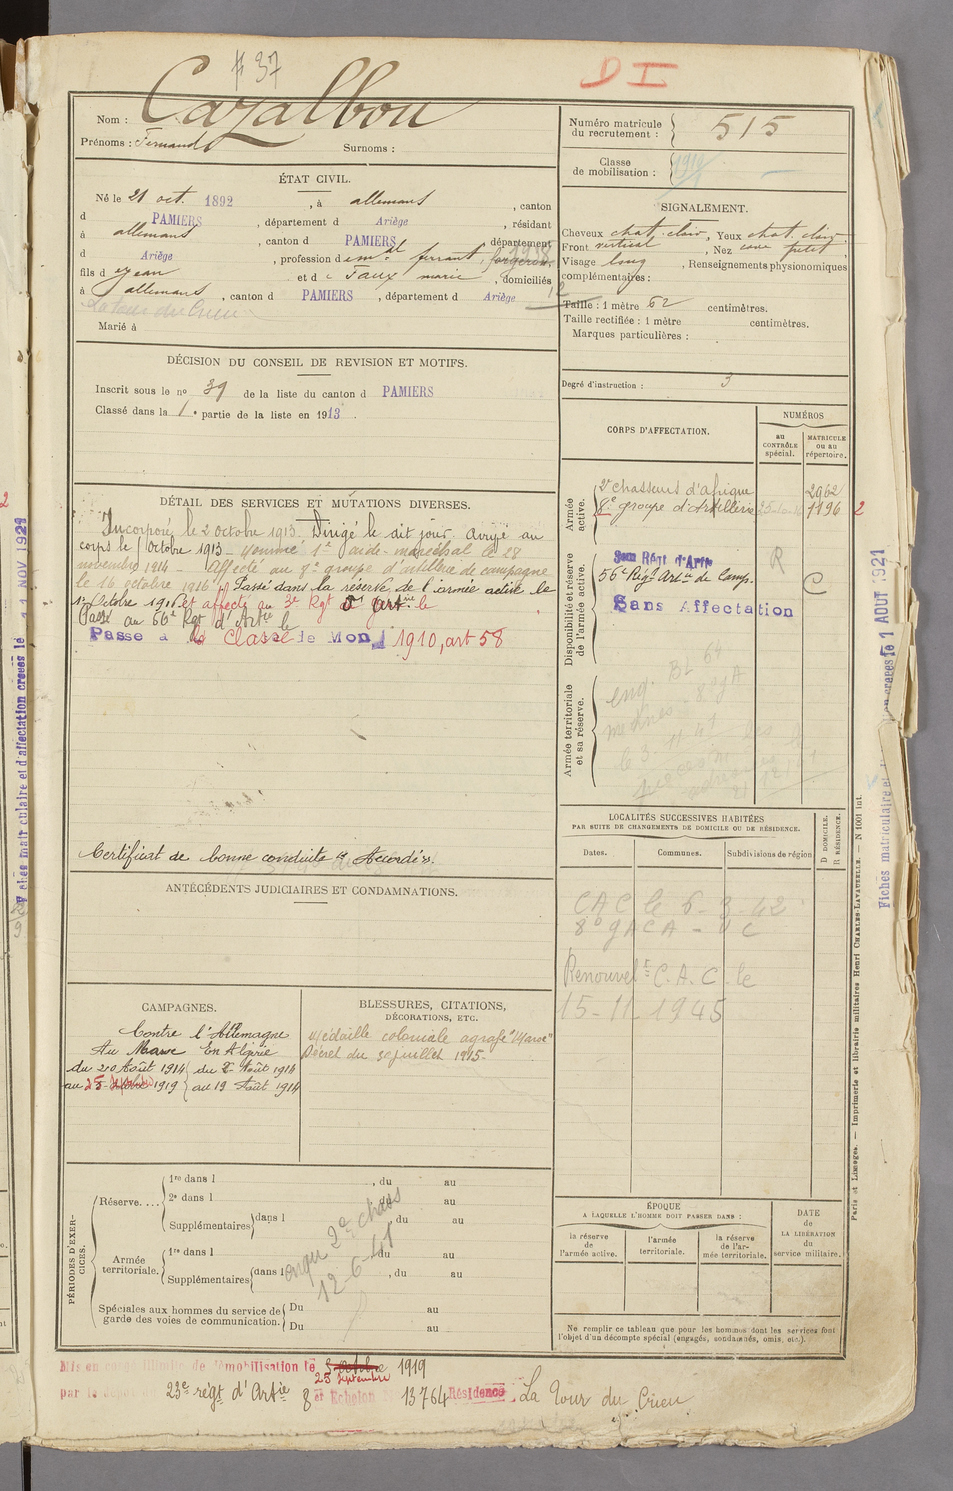 # 37
D I
Nom : Cazalbou
Prénoms : Fernand
Surnoms :
ÉTAT CIVIL.
Né le 21 oct. 1892, à allemans, canton
d PAMIERS, département d Ariège, résidant
à allemans, canton d PAMIERS, département
d Ariège, profession d ferrant, forgeron
fils d Jean et d Marie, domiciliés
à allemans, canton d PAMIERS, département d Ariège
La tour du Crieu
Marié à
DÉCISION DU CONSEIL DE REVISION ET MOTIFS.
Inscrit sous le nº 39 de la liste du canton d PAMIERS
Classé dans la 1e partie de la liste en 1913.
DÉTAIL DES SERVICES ET MUTATIONS DIVERSES.
Incorporé le 2 octobre 1913. Dirigé le dit jour. Arrivé au
corps le octobre 1913 - Nommé 1er aide-maréchal le 28
novembre 1914 Affecté au 8e groupe d'artillerie de campagne
le 16 octobre 1916 Passé dans la réserve de l'armée active le
1er Octobre 1916 et affecté au 3e Rgt d'Artie le
Passé au 56e Rgt d'Artie le
Passé à la Classe de Mon 1910, art 58
Certificat de bonne conduite "Accordé".
ANTÉCÉDENTS JUDICIAIRES ET CONDAMNATIONS.
CAMPAGNES.
Contre l'Allemagne
Au Maroc En Algérie
du 20 Août 1914 du 2 Août 1914
au 25 1919 au 19 Août 1914
BLESSURES, CITATIONS,
DÉCORATIONS, ETC.
Médaille coloniale agrafe "Maroc"
Décret du 30 juillet 1915-
PÉRIODES D'EXERCICES.
Réserve....
1re dans l , du au
2e dans l au
Supplémentaires dans l , du au
Armée territoriale.
1re dans l du au
Supplémentaires dans l , du au
Spéciales aux hommes du service de garde des voies de communication.
Du au
Du au
engu 2e chars
12-6-41
Mis en congé illimité de démobilisation le 5 Octobre 1919
25 Septembre
par le dépôt 23e régt d'Artie 8 er Echelon 13764 Résidence La Tour du Crieu
Numéro matricule
du recrutement : 515
Classe
de mobilisation : 1910
SIGNALEMENT.
Cheveux chat. clair, Yeux chat. clair,
Front vertical, Nez cave petit,
Visage long, Renseignements physionomiques
complémentaires :
Taille : 1 mètre 62 centimètres.
Taille rectifiée : 1 mètre centimètres.
Marques particulières :
Degré d'instruction : 3
CORPS D'AFFECTATION.
NUMÉROS
au
CONTRÔLE
spécial.
MATRICULE
ou au
répertoire.
Armée
active.
2e chasseurs d'afrique 2962
8e groupe d'Artillerie 1196 2
Disponibilité et réserve
de l'armée active.
3em Régt d'Artie R
56e Régt Artie de Camp. C
Sans Affectation
Armée territoriale
et sa réserve.
LOCALITÉS SUCCESSIVES HABITÉES
PAR SUITE DE CHANGEMENTS DE DOMICILE OU DE RÉSIDENCE.
Dates.
Communes.
Subdivisions de région
D DOMICILE.
R RÉSIDENCE.
CAC le 6-3-42
8º GACA -
Renouvelt C.A.C. le
15-11 1945
ÉPOQUE
A LAQUELLE L'HOMME DOIT PASSER DANS :
la réserve
de
l'armée active.
l'armée
territoriale.
la réserve
de l'ar-
mée territoriale.
DATE
de
LA LIBÉRATION
du
service militaire.
Ne remplir ce tableau que pour les hommes dont les services font
l'objet d'un décompte spécial (engagés, condamnés, omis, etc.).
Paris et Limoges. — Imprimerie et librairie militaires Henri CHARLES-LAVAUZELLE. — N 1001 int.
11 NOV 1921
1 AOUT 1921